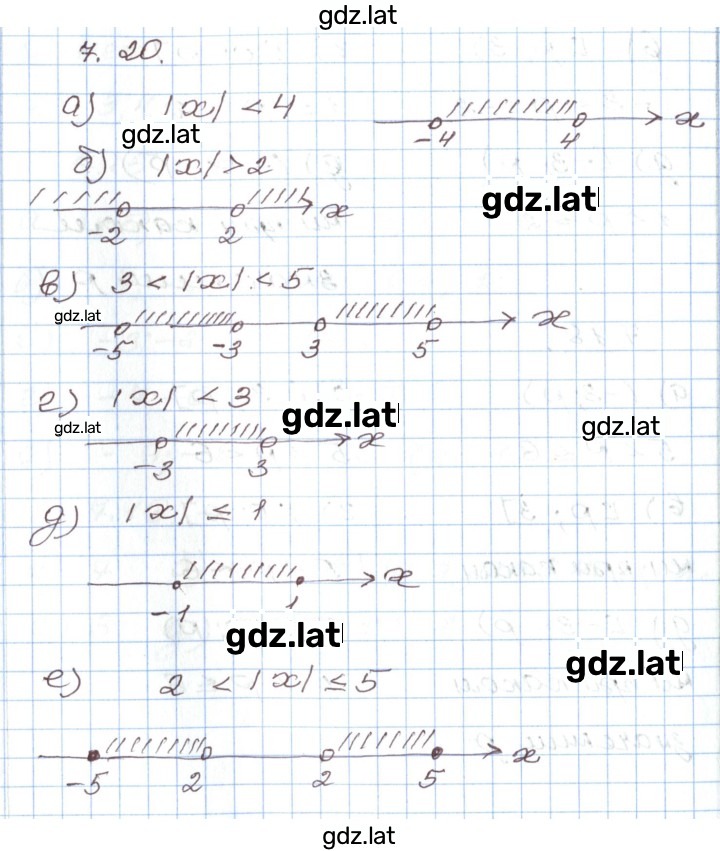 gdz.lat
7. 20.
а) |x| < 4
-4 4 x
gdz.lat
б) |x| > 2
gdz.lat
-2 2 x
в) 3 < |x| < 5
gdz.lat
-5 -3 3 5 x
г) |x| < 3
gdz.lat
gdz.lat
gdz.lat
-3 3 x
д) |x| ≤ 1
-1 1 x
gdz.lat
gdz.lat
е) 2 < |x| ≤ 5
-5 2 2 5 x
gdz.lat